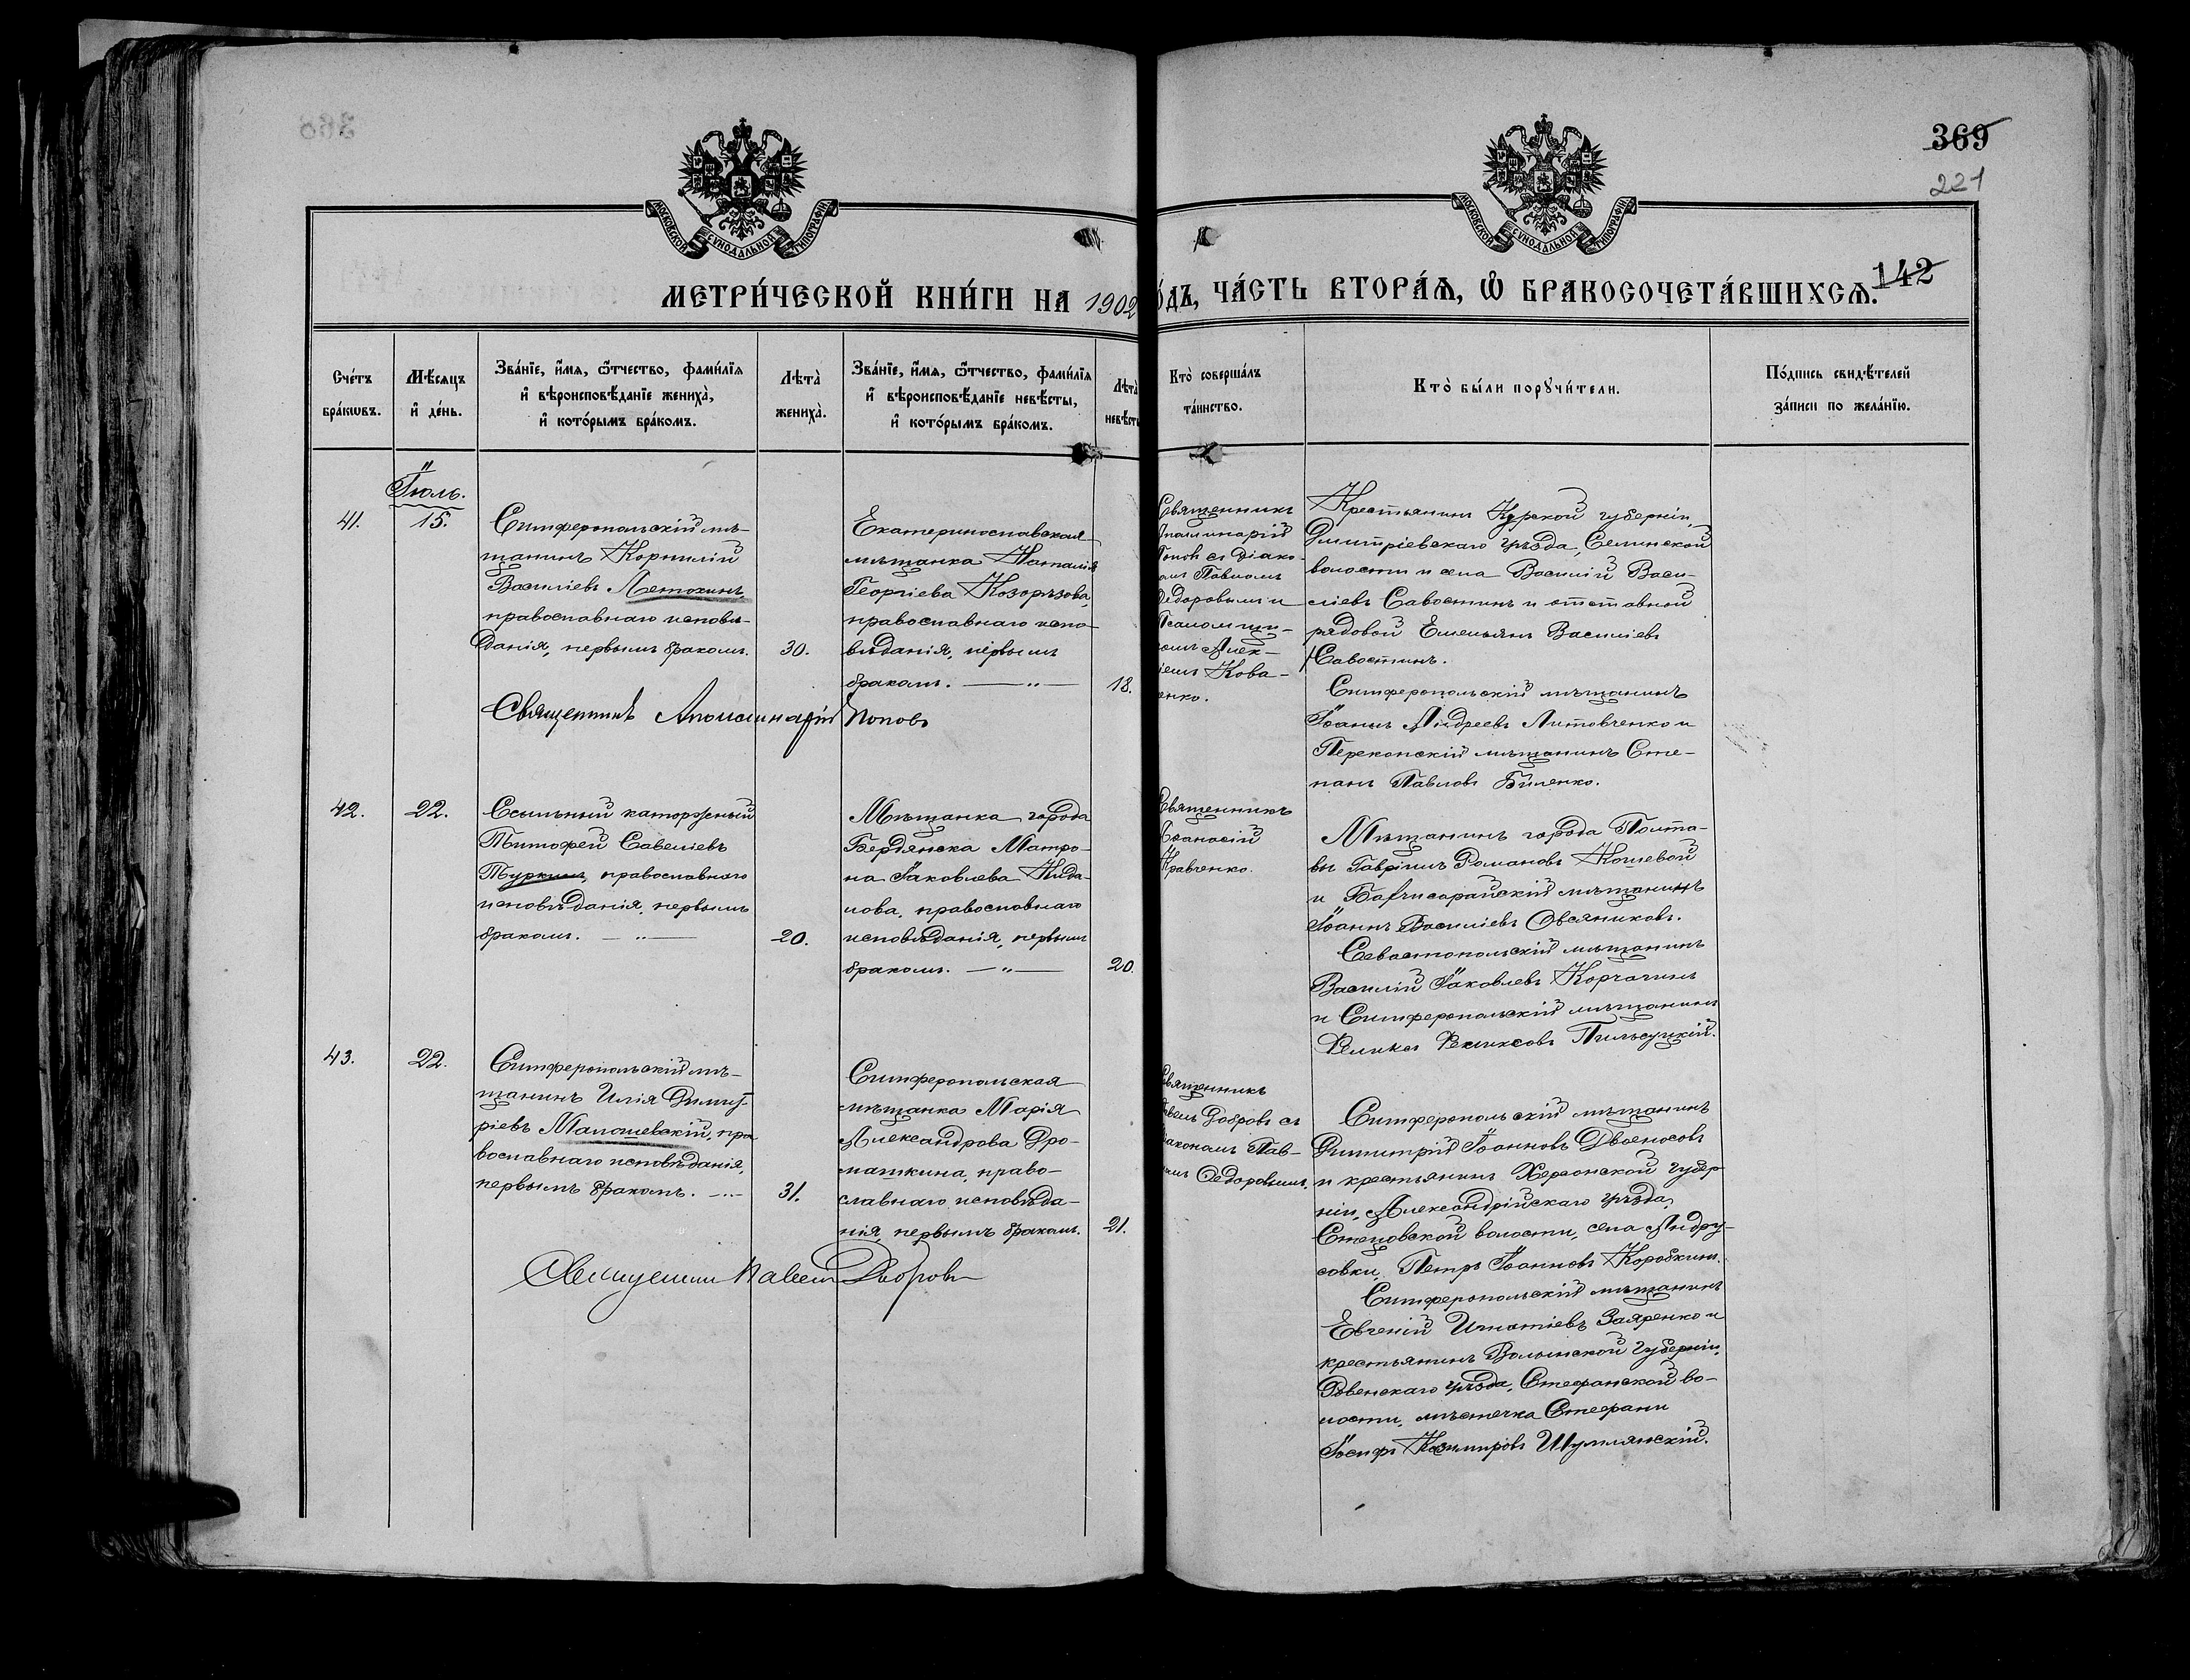 368
369
221
142
МОСКОВСКОЙ СУНОДАЛЬНОЙ ТИПОГРАФІИ
МОСКОВСКОЙ СУНОДАЛЬНОЙ ТИПОГРАФІИ
МЕТРИ́ЧЕСКОЙ КНИ́ГИ НА 1902
О́ДЪ, ЧА́СТЬ ВТОРА́Ѧ, Ѡ҆ БРАКОСОЧЕТА́ВШИХСѦ.
Сче́тъ
бра́кѡвъ.
Мѣ́сѧцъ
и҆ де́нь.
Зва́нїе, и҆́мѧ, ѻ҆́тчество, фами́лїѧ
и҆ вѣроисповѣ́данїе жениха̀,
и҆ кото́рымъ бра́комъ.
Лѣта̀
жениха̀.
Зва́нїе, и҆́мѧ, ѻ҆́тчество, фами́лїѧ
и҆ вѣроисповѣ́данїе невѣ́сты,
и҆ кото́рымъ бра́комъ.
Лѣта̀
невѣ́сты
Кто̀ соверша́лъ
та́инство.
Кто̀ бы́ли порꙋчи́тели.
По́дпись свидѣ́телей
за́писи по жела́нїю.
Іюль.
41.
15.
Симферопольскій мѣ-
щанинъ Корнилій
Василіевъ Летохинъ,
православнаго исповѣ-
данія, первымъ бракомъ.
30.
Екатеринославская
мѣщанка Наталія
Георгіева Козорѣзова,
православнаго испо-
вѣданія, первымъ
бракомъ. — „ —
18.
Священникъ Аполлинарій Поповъ
Священникъ
Аполлинарій
Поповъ съ діако-
омъ Павломъ
Ѳедоровымъ и
Псаломщи-
омъ Алек-
іемъ Кова-
енко.
Крестьянинъ Курской губерніи,
Дмитріевскаго уѣзда, Селинской
волости и села Василій Васи-
ліевъ Савостинъ и отставной
рядовой Емельянъ Василіевъ
Савостинъ.
Симферопольскій мѣщанинъ
Іоаннъ Андреевъ Литовченко и
Перекопскій мѣщанинъ Сте-
панъ Павловъ Биленко.
42.
22.
Ссыльный каторжный
Тимофей Савеліевъ
Туркинъ, православнаго
исповѣданія, первымъ
бракомъ. — „ —
20.
Мѣщанка города
Бердянска Матро-
на Іаковлева Кида-
лова, православнаго
исповѣданія, первымъ
бракомъ. — „ —
20.
Священникъ
Аѳанасій
Кравченко.
Мѣщанинъ города Полта-
вы Гавріилъ Романовъ Кошевой
и Бахчисарайскій мѣщанинъ
Іоаннъ Василіевъ Овсяниковъ.
Севастопольскій мѣщанинъ
Василій Іаковлевъ Корчагинъ
и Симферопольскій мѣщанинъ
Феликсъ Феликсовъ Пильсуцкій.
43.
22.
Симферопольскій мѣ-
щанинъ Илія Димит-
ріевъ Малошевскій, пра
вославнаго исповѣданія,
первымъ бракомъ. — „ —
31.
Симферопольская
мѣщанка Марія
Александрова Дро-
маткина, право-
славнаго исповѣда-
нія, первымъ бракомъ.
21.
Священникъ Павелъ Добровъ
Священникъ
авелъ Добровъ съ
іакономъ Пав-
омъ Ѳедоровымъ.
Симферопольскій мѣщанинъ
Димитрій Іоанновъ Двоеносовъ
и крестьянинъ Херсонской губер
ніи, Александрійскаго уѣзда,
Степовской волости, села Андру-
совки, Петръ Іоанновъ Коробкинъ.
Симферопольскій мѣщанинъ
Евгеній Игнатіевъ Заяренко и
крестьянинъ Волынской губерніи,
Ровенскаго уѣзда, Степанской во-
лости, мѣстечка Степани
Іосифъ Казиміровъ Шумлянскій.